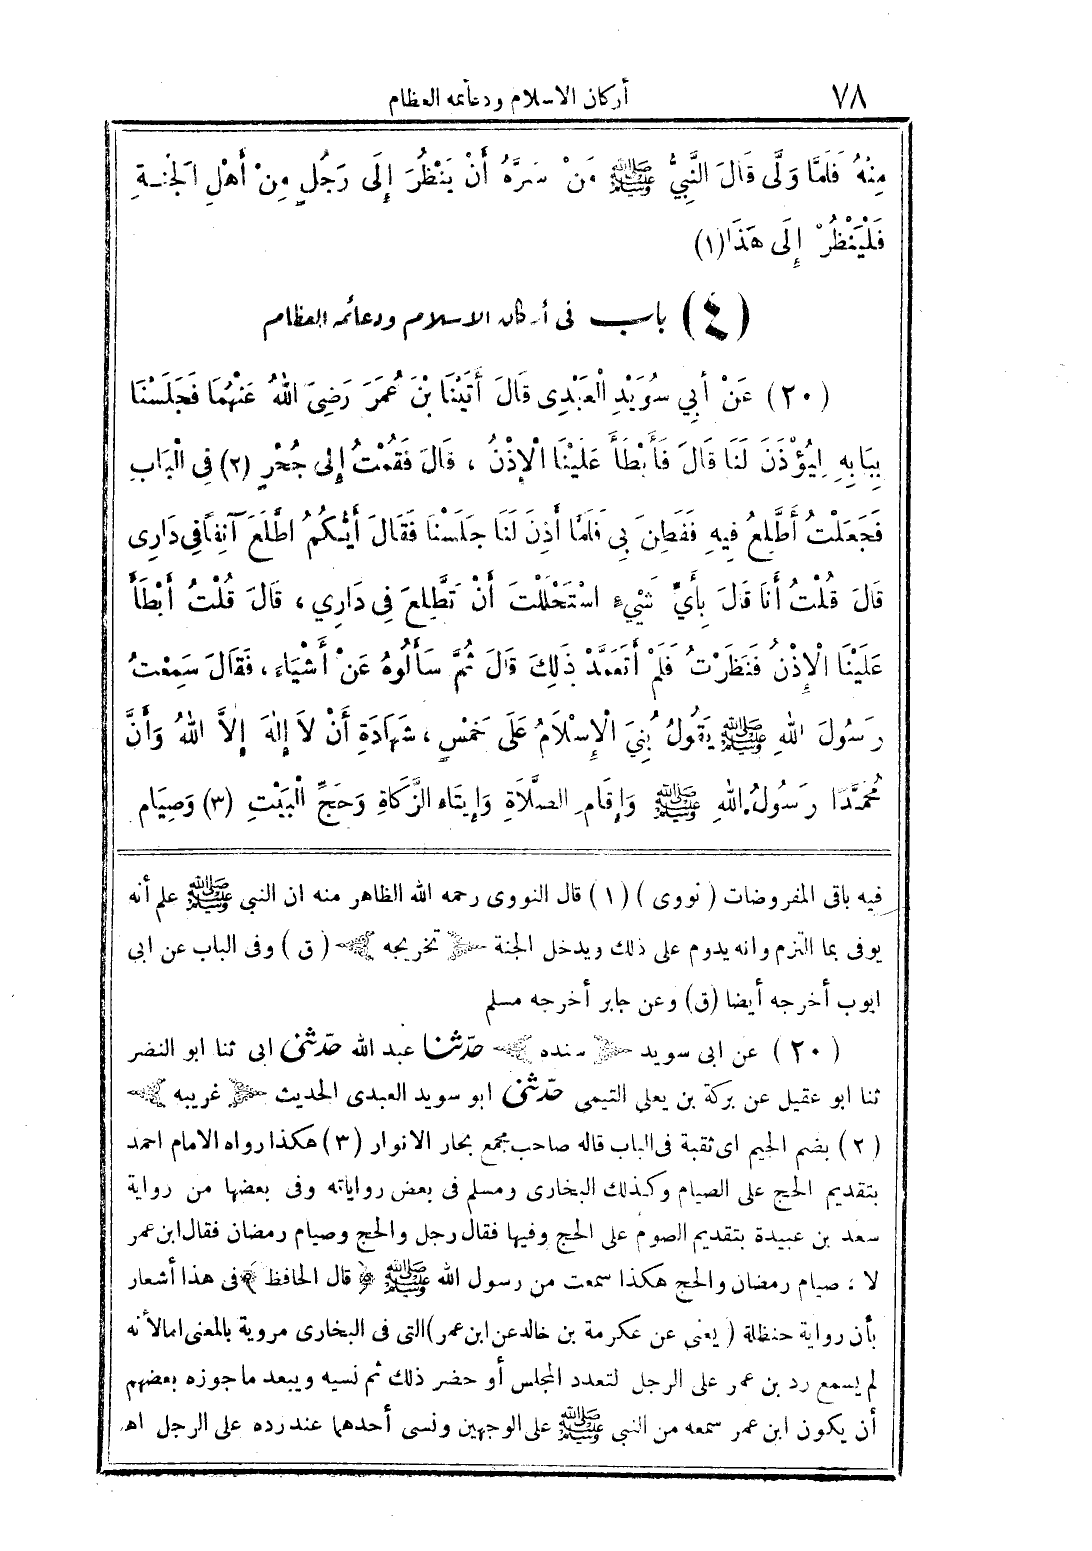 ٧٨
أركان الاسلام ودعائمه العظام
مِنْهُ فَلَمَّا وَلَّى قَالَ النَّبِيُّ ﷺ مَنْ سَرَّهُ أَنْ يَنْظُرَ إِلَى رَجُلٍ مِنْ أَهْلِ الْجَنَّةِ
فَلْيَنْظُرْ إِلَى هَذَا (١)
(٤) باب فى أركان الاسلام ودعائمه العظام
(٢٠) عَنْ أَبِي سُوَيْدٍ الْعَبْدِى قَالَ أَتَيْنَا بْنَ عُمَرَ رَضِىَ اللهُ عَنْهُمَا فَجَلَسْنَا
بِبَابِهِ لِيُؤْذَنَ لَنَا قَالَ فَأَبْطَأَ عَلَيْنَا الْإِذْنُ ، قَالَ فَقُمْتُ إِلى جُحْرٍ (٢) فِى الْبَابِ
فَجَعَلْتُ أَطَّلِعُ فِيهِ فَفَطِنَ بِى فَلَمَّا أَذِنَ لَنَا جَلَسْنَا فَقَالَ أَيُّكُمُ اطَّلَعَ آنِفًا فِى دَارِى
قَالَ قُلْتُ أَنَا قَالَ بِأَيِّ شَيْءٍ اسْتَحْلَلْتَ أَنْ تَطَّلِعَ فِى دَارِي ، قَالَ قُلْتُ أَبْطَأَ
عَلَيْنَا الْإِذْنُ فَنَظَرْتُ فَلَمْ أَتَعَمَّدْ ذَلِكَ قَالَ ثُمَّ سَأَلُوهُ عَنْ أَشْيَاءَ ، فَقَالَ سَمِعْتُ
رَسُولَ اللهِ ﷺ يَقُولُ بُنِيَ الْإِسْلَامُ عَلَى خَمْسٍ ، شَهَادَةِ أَنْ لاَ إِلٰهَ إِلاَّ اللهُ وَأَنَّ
مُحَمَّدًا رَسُولُ اللهِ ﷺ وَإِقَامِ الصَّلاَةِ وَإِيتَاءِ الزَّكَاةِ وَحَجِّ الْبَيْتِ (٣) وَصِيَامِ
فيه باقى المفروضات ( نووى ) (١) قال النووى رحمه الله الظاهر منه ان النبى ﷺ علم أنه
يوفى بما التزم وانه يدوم على ذلك ويدخل الجنة ﴿ تخريجه ﴾ ( ق ) وفى الباب عن ابى
ايوب أخرجه أيضا (ق) وعن جابر أخرجه مسلم
(٢٠) عن ابى سويد ﴿ سنده ﴾ حدّثنا عبد الله حدّثنى ابى ثنا ابو النضر
ثنا ابو عقيل عن بركة بن يعلى التيمى حدّثنى ابو سويد العبدى الحديث ﴿ غريبه ﴾
(٢) بضم الجيم اى ثقبة فى الباب قاله صاحب مجمع بحار الانوار (٣) هكذا رواه الامام احمد
بتقديم الحج على الصيام وكذلك البخارى ومسلم فى بعض رواياته وفى بعضها من رواية
سعد بن عبيدة بتقديم الصوم على الحج وفيها فقال رجل والحج وصيام رمضان فقال ابن عمر
لا ، صيام رمضان والحج هكذا سمعت من رسول الله ﷺ ﴿ قال الحافظ ﴾ فى هذا أشعار
بأن رواية حنظلة ( يعنى عن عكرمة بن خالد عن ابن عمر) التى فى البخارى مروية بالمعنى اما لأنه
لم يسمع رد بن عمر على الرجل لتعدد المجلس أو حضر ذلك ثم نسيه ويبعد ما جوزه بعضهم
أن يكون ابن عمر سمعه من النبى ﷺ على الوجهين ونسى أحدهما عند رده على الرجل اهـ